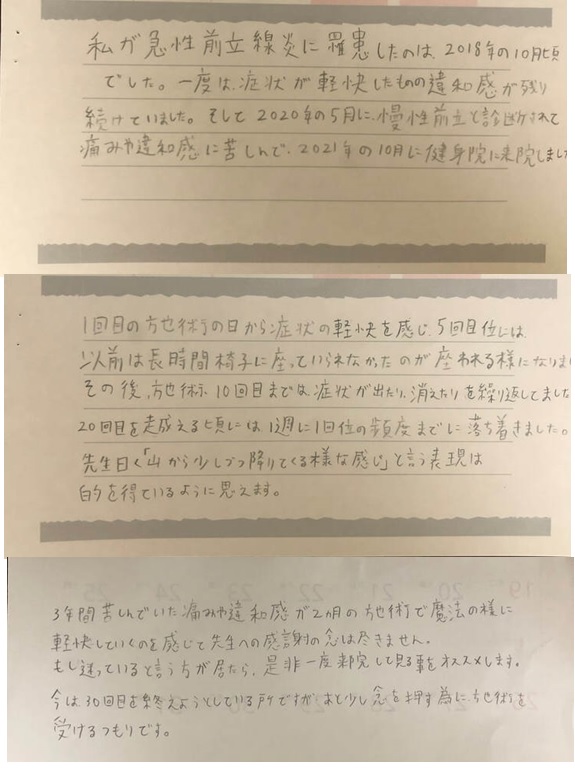 私が急性前立線炎に罹患したのは、2018年の10月頃
でした。一度は、症状が軽快したものの違和感が残り
続けていました。そして2020年の5月に、慢性前立と診断されて
痛みや違和感に苦しんで、2021年の10月に健身院に来院しまし
1回目の施術の日から症状の軽快を感じ、5回目位には
以前は長時間椅子に座っていられなかったのが座われる様になりま
その後、施術10回目までは、症状が出たり、消えたりを繰り返してました
20回目を超える頃には1週に1回位の頻度までに落ち着きました。
先生曰く「山から少しづつ降りてくる様な感じ」と言う表現は
的を得ているように思えます。
3年間苦しんでいた痛みや違和感が2ヵ月の施術で魔法の様に
軽快していくのを感じて先生への感謝の念は尽きません。
もし迷っていると言う方が居たら、是非一度来院して見る事をオススメします。
今は30回目を終えようとしている所ですが、あと少し念を押す為に、施術を
受けるつもりです。